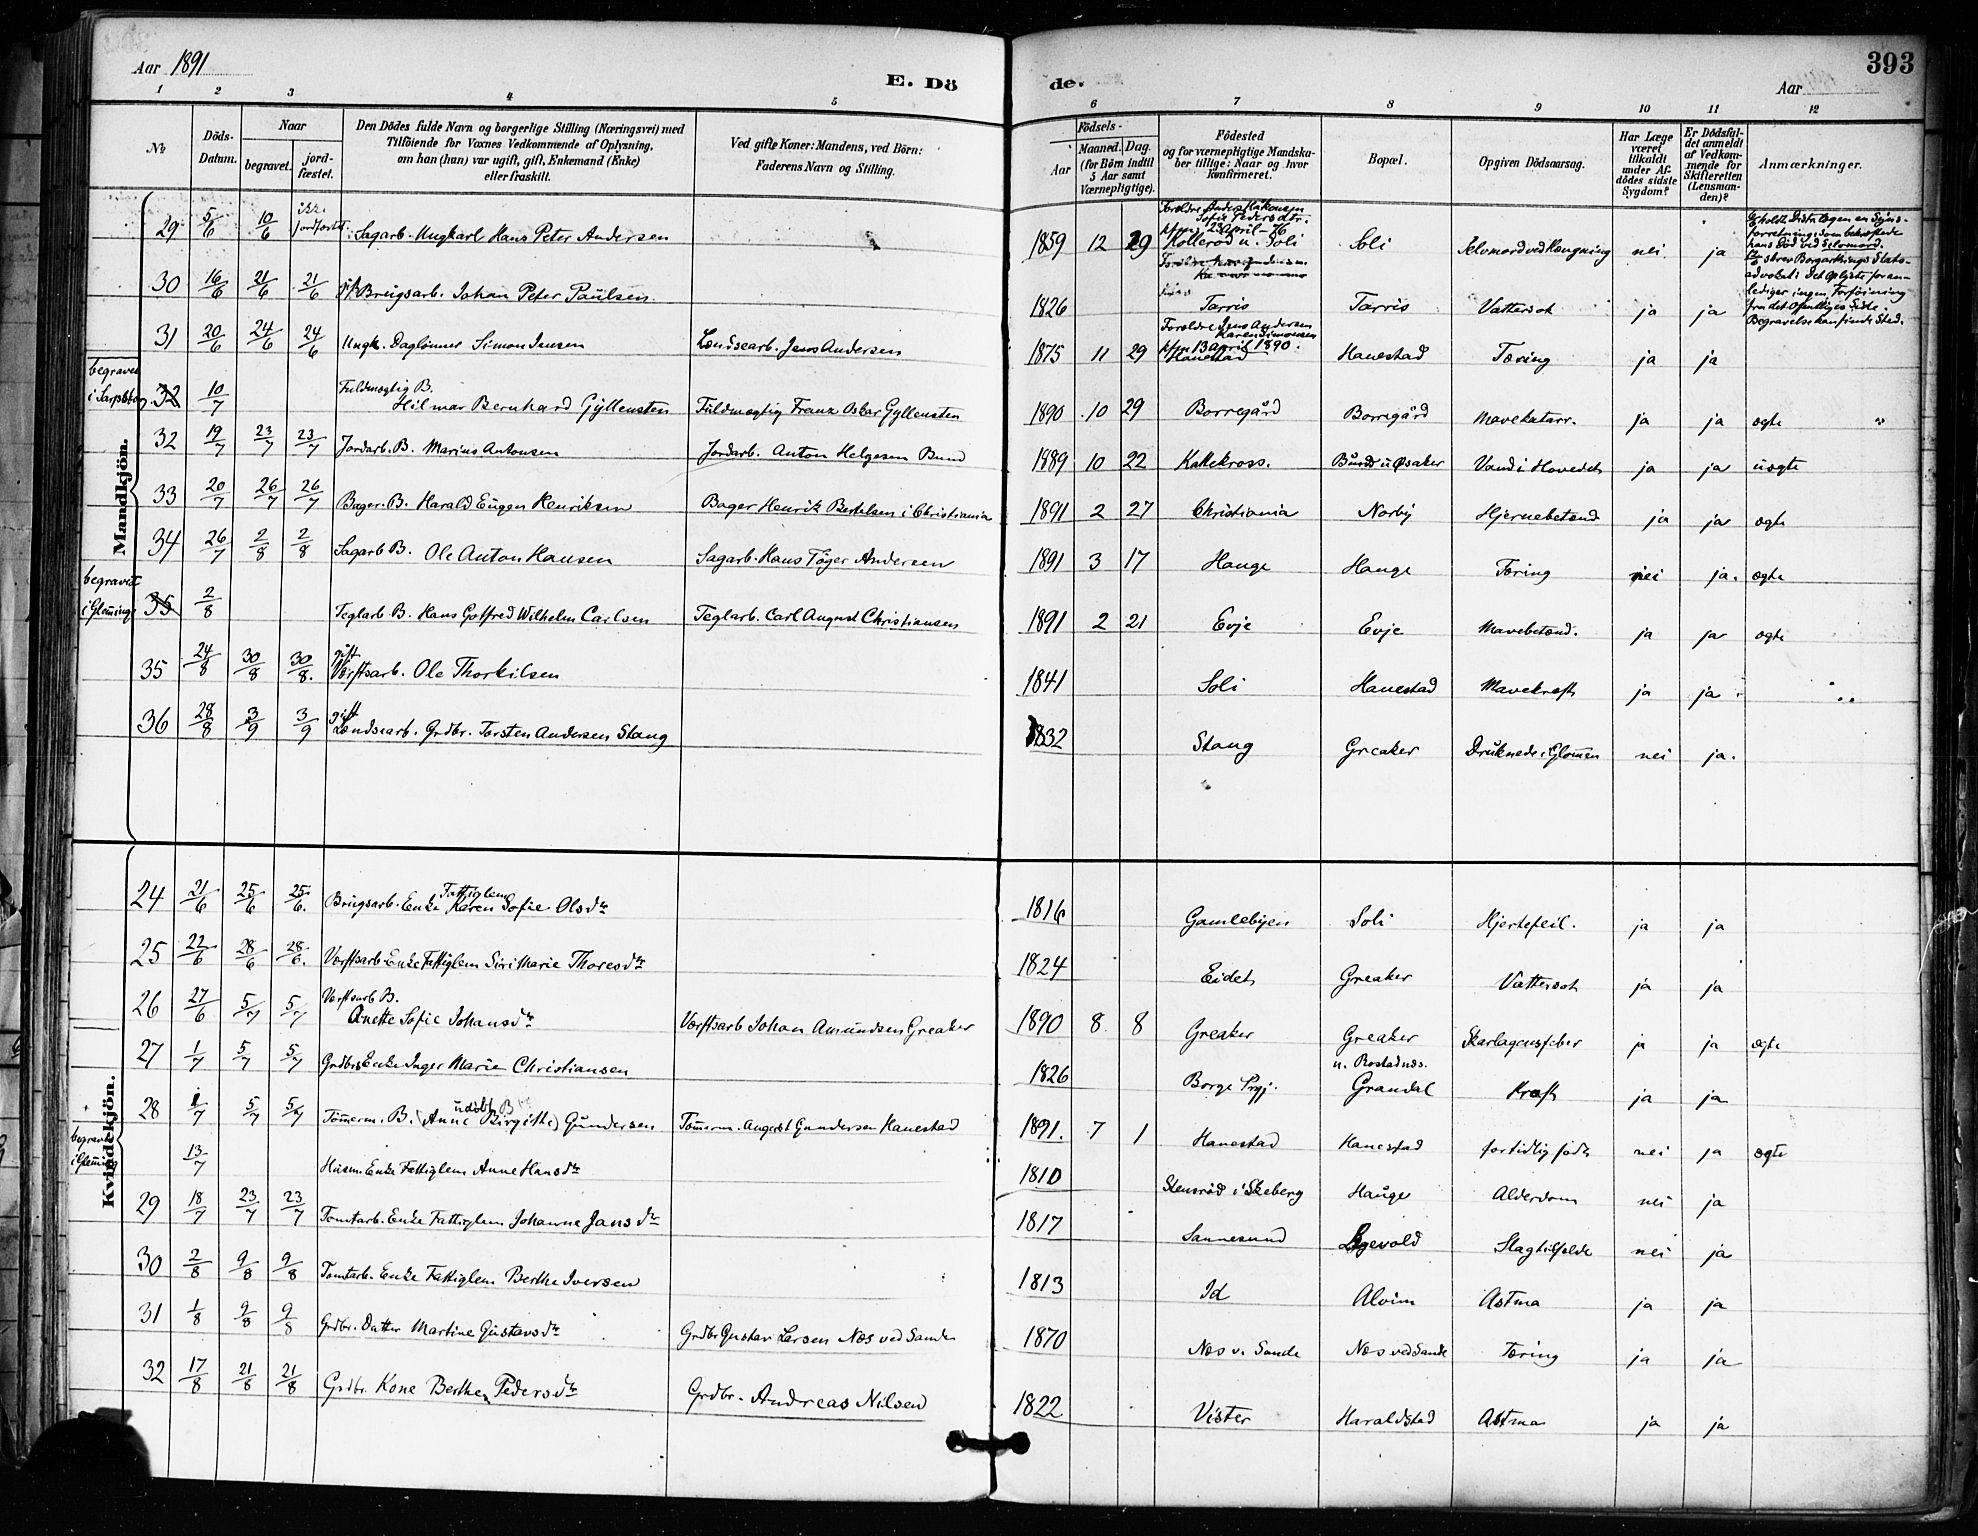 Aar 1891
E. Dö
de.
Aar
393
1 2 3 4 5 6 7 8 9 10 11 12
No
Döds-Datum.
Naar
begravet.
jord-fæstet.
Den Dödes fulde Navn og borgerlige Stilling (Næringsvei) med
Tilföiende for Voxnes Vedkommende af Oplysning,
om han (hun) var ugift, gift, Enkemand (Enke)
eller fraskilt.
Ved gifte Koner: Mandens, ved Börn:
Faderens Navn og Stilling.
Födsels-
Aar
Maaned. Dag.
(for Börn indtil
5 Aar samt
Værnepligtige).
Födested
og for værnepligtige Mandska-
ber tillige: Naar og hvor
konfirmeret.
Bopæl.
Opgiven Dödsaarsag.
Har Læge
været
tilkaldt
under Af-
dödes sidste
Sygdom?
Er Dödsfal-
det anmeldt
af Vedkom-
mende for
Skifteretten
(Lensman-
den)?
Anmærkninger.
Mandkjön.
29 5/6 10/6 ikke jordfæstet Sagarb. Ungkarl Hans Peter Andersen 1859 12 29 Forældre Anders Håkonsen Sofie Pedersdtr. kfm. 23 April -76 Kollerød u. Soli Soli Selvmord ved Hængning nei ja
30 16/6 21/6 21/6 gift Brugsarb. Johan Peter Paulsen 1826 Tarris Tarris Vattersot ja ja
31 20/6 24/6 24/6 Ungk. Daglønner Simon Jensen Lændsearb. Jens Andersen 1875 11 29 Forældre Jens Andersen Karen Simonsen kfm 13 April 1890. Hanestad Hanestad Tæring ja ja
begravet i Sarpsborg 32 10/7 Fuldmægtig B. Hilmar Bernhard Gyllensten Fuldmægtig Franz Oskar Gyllensten 1890 10 29 Borregård Borregård Mavekatarr. ja ja ægte
32 19/7 23/7 23/7 Jordarb. B. Marius Antonsen Jordarb. Anton Helgesen Bund 1889 10 22 Kattekross. Bund u Øsaker Vand i Hovedet ja ja uægte
33 20/7 26/7 26/7 Bager. B. Harald Eugen Henriksen Bager Henrik Bertelsen i Christiania 1891 2 27 Christiania Norby Hjernebetænd ja ja ægte
34 26/7 2/8 2/8 Sagarb B. Ole Anton Hansen Sagarb. Hans Tøger Andersen 1891 3 17 Hauge Hauge Tæring nei ja. ægte
begravet i Glemminge 35 2/8 Teglarb B. Hans Gotfred Wilhelm Carlsen Teglarb. Carl August Christiansen 1891 2 21 Evje Evje Mavebetænd. ja ja ægte
35 24/8 30/8 30/8. gift Værftsarb. Ole Thorkilsen 1841 Soli Hanestad Mavekræft ja ja
36 28/8 3/9 3/9 gift Lændsearb. Grdbr. Torsten Andersen Stang 1832 Stang Greaker Druknede i Glommen nei ja.
Kvindekjön.
24 21/6 25/6 25/6. Brugsarb. Enke Fattiglem Karen Sofie Olsdtr 1816 Gamlebyen Soli Hjertefeil. ja ja
25 22/6 28/6 28/6. Værftsarb. Enke Fattiglem Siri Marie Thoresdtr 1824 Eidet Greaker Vattersot ja ja
26 27/6 5/7 5/7 Værftsarb B. Anette Sofie Johansdtr Værftsarb Johan Amundsen Greaker 1890 8 8 Greaker Greaker Skarlagensfeber ja ja ægte
27 1/7 5/7 5/7 Grdbrs Enke Inger Marie Christiansen 1826 Borge Prgj. Grandal Kræft ja ja
28 1/7 5/7 5/7 Tömerm. B. (Anne Birgithe) udøbt B Gundersen Tömerm. August Gundersen Hanestad 1891. 7 1 Hanestad Hanestad fortidlig født nei ja ægte
13/7 Husm. Enke Fattiglem Anne Hansdtr 1810 Stensrød i Skeberg Hauge Alderdom nei ja
29 18/7 23/7 23/7 Tomtarb. Enke Fattiglem Johanne Jansdtr 1817 Sannesund Slagtilfælde nei ja
30 2/8 9/8 9/8 Tomtarb. Enke Fattiglem Berthe Iversen 1813 Id Alvim Astma ja ja
31 1/8 9/8 9/8 Grdbr. Datter Martine Gustavsdtr Grdbr Gustav Larsen Næs ved Sande 1870 Næs v. Sande Næs ved Sande Tæring ja ja
32 17/8 21/8 21/8 Grdbr. Kone Berthe Pedersdtr Grdbr. Andreas Nilsen 1822 Vister Haraldstad Astma ja ja